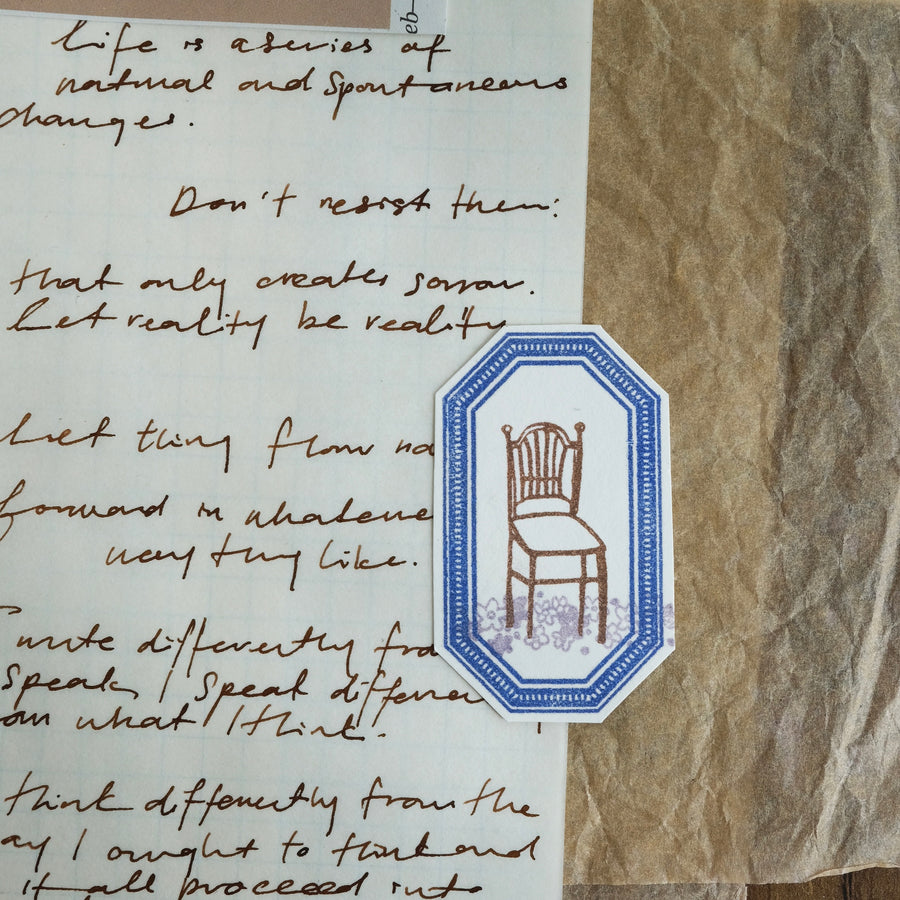 eb
Life is a series of
natural and spontaneous
changes.
Don't resist them:
that only creates sorrow.
Let reality be reality
Let thing flow na
forward in whateve
way thy like.
I write differently fro
Speak, I speak differen
om what I think.
think differently from the
ay I ought to think and
it all proceed into